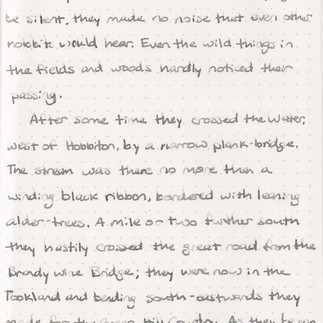 be silent, they made no noise that even other
hobbit would hear. Even the wild things in
the fields and woods hardly noticed their
passing.
After some time they crossed the Water,
west of Hobbiton, by a narrow plank-bridge.
The stream was there no more than a
winding black ribbon, bordered with leaning
alder-trees. A mile or two further south
they hastily crossed the great road from the
Brandy wine Bridge; they were now in the
Tookland and bending south-eastwards they
made for the Green Hill Country. As they began